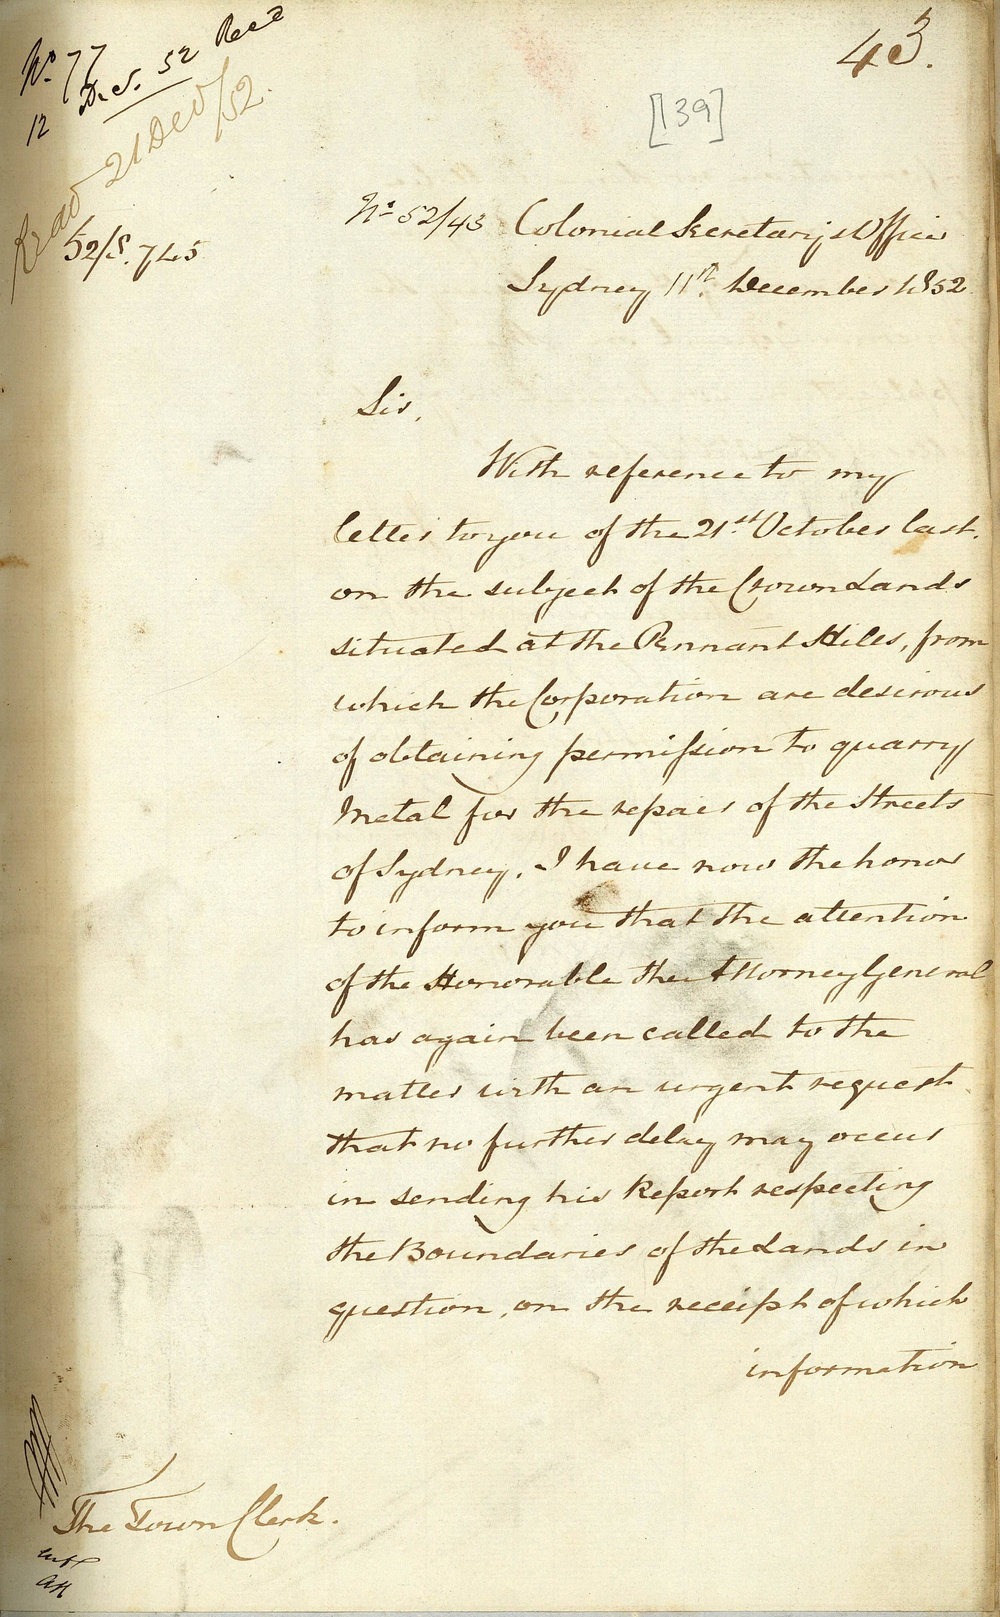 43.
[139]
No. 77
12 Dec. 52 Recd
Read 21 Decr/52.
52/S. 745
No. 52/43 Colonial Secretary's Office
Sydney 11th. December 1852
Sir,
With reference to my
letter to you of the 21st. October last,
on the subject of the Crown Lands
situated at the Pennant Hills, from
which the Corporation are desirous
of obtaining permission to quarry
Metal for the repair of the Streets
of Sydney, I have now the honor
to inform you that the attention
of the Honorable the Attorney General
has again been called to the
matter with an urgent request
that no further delay may occur
in sending his Report respecting
the Boundaries of the Lands in
question, on the receipt of which
information
The Town Clerk.